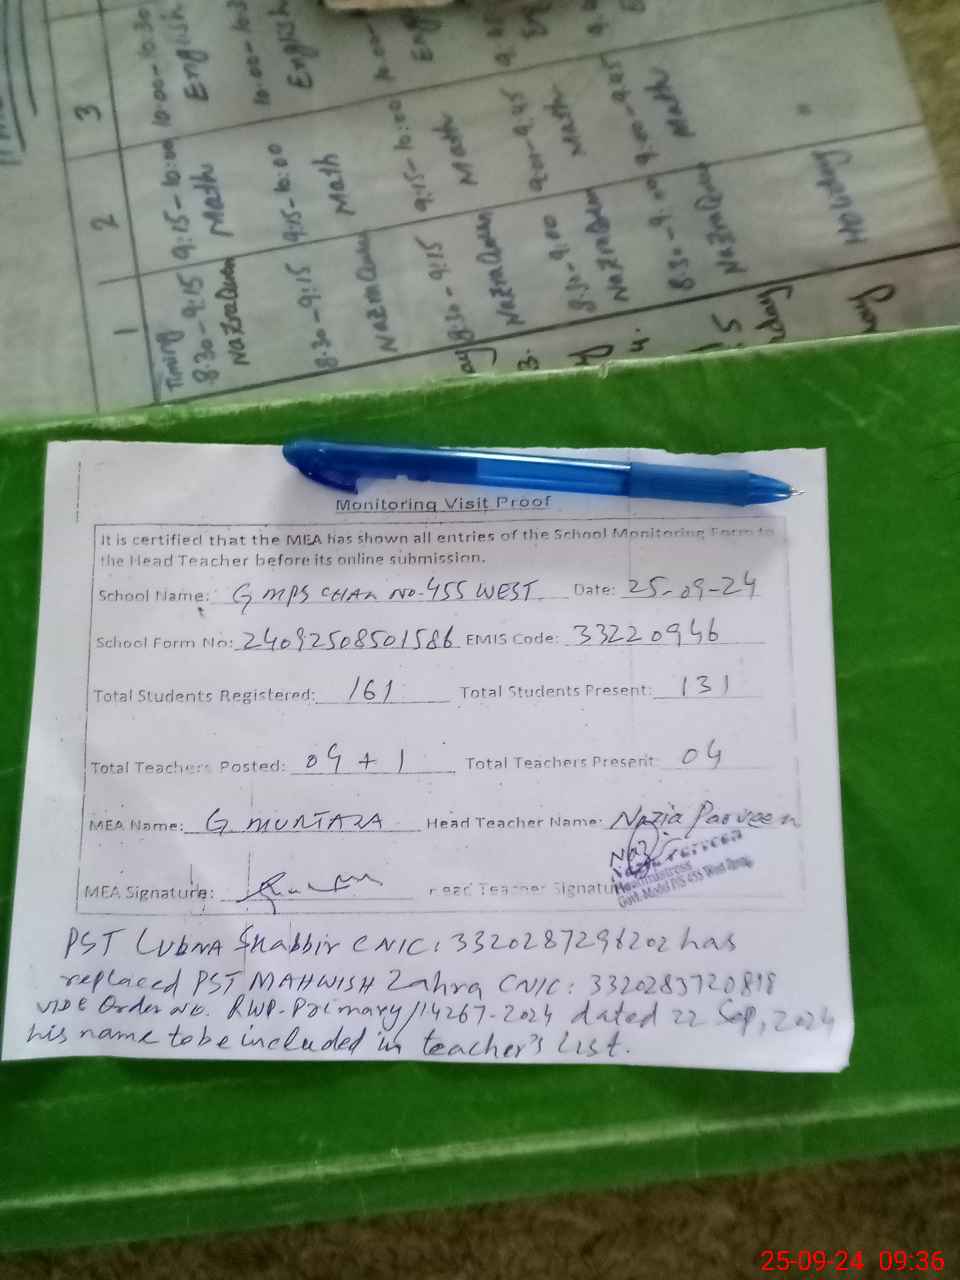 1 2 3
Timing
8:30-9:15 9:15-10:00 10:00-10:30
Math English
8:30-9:15 9:15-10:00
Math English
8:30-9:15 9:15-10:00
Math
8:30-9:00
Math
Math
Holiday "
3.
4.
5
Monitoring Visit Proof
It is certified that the MEA has shown all entries of the School Monitoring Form to
the Head Teacher before its online submission.
School Name: GMPS CHAK NO-455 WEST Date: 25-09-24
School Form No: 24092508501586 EMIS Code: 33220946
Total Students Registered: 161 Total Students Present: 131
Total Teachers Posted: 04 + 1 Total Teachers Present: 04
MEA Name: G. MURTAZA Head Teacher Name: Nazia Parveen
MEA Signature: Head Teacher Signature
Nazia Parveen
Headmistress
Govt. Model P/S 455 West
PST LUBNA Shabbir CNIC: 3320287298202 has
replaced PST MAHWISH Zahra CNIC: 3320283720818
VIDE Order No. RWP-Primary/14267-2024 dated 22 Sep, 2024
his name to be included in teacher's list.
25-09-24 09:36